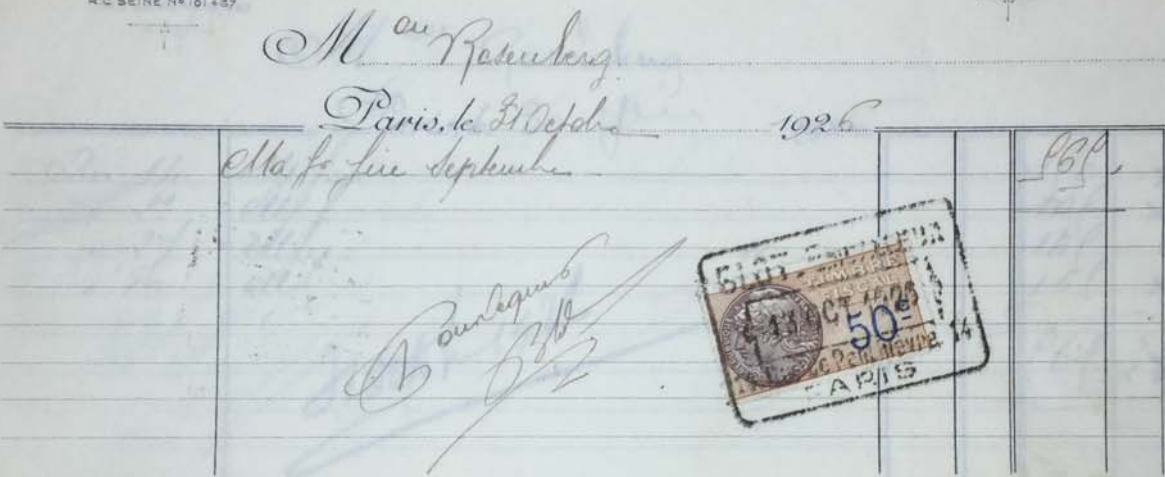 R.C. SEINE Nº 161.437
M on Rosenberg
Paris, le 31 Octobre 1926
Ma fre fin Septembre 565,
Pour acquit
TIMBRE
FISCAL
13 OCT 1926
50c
PARIS